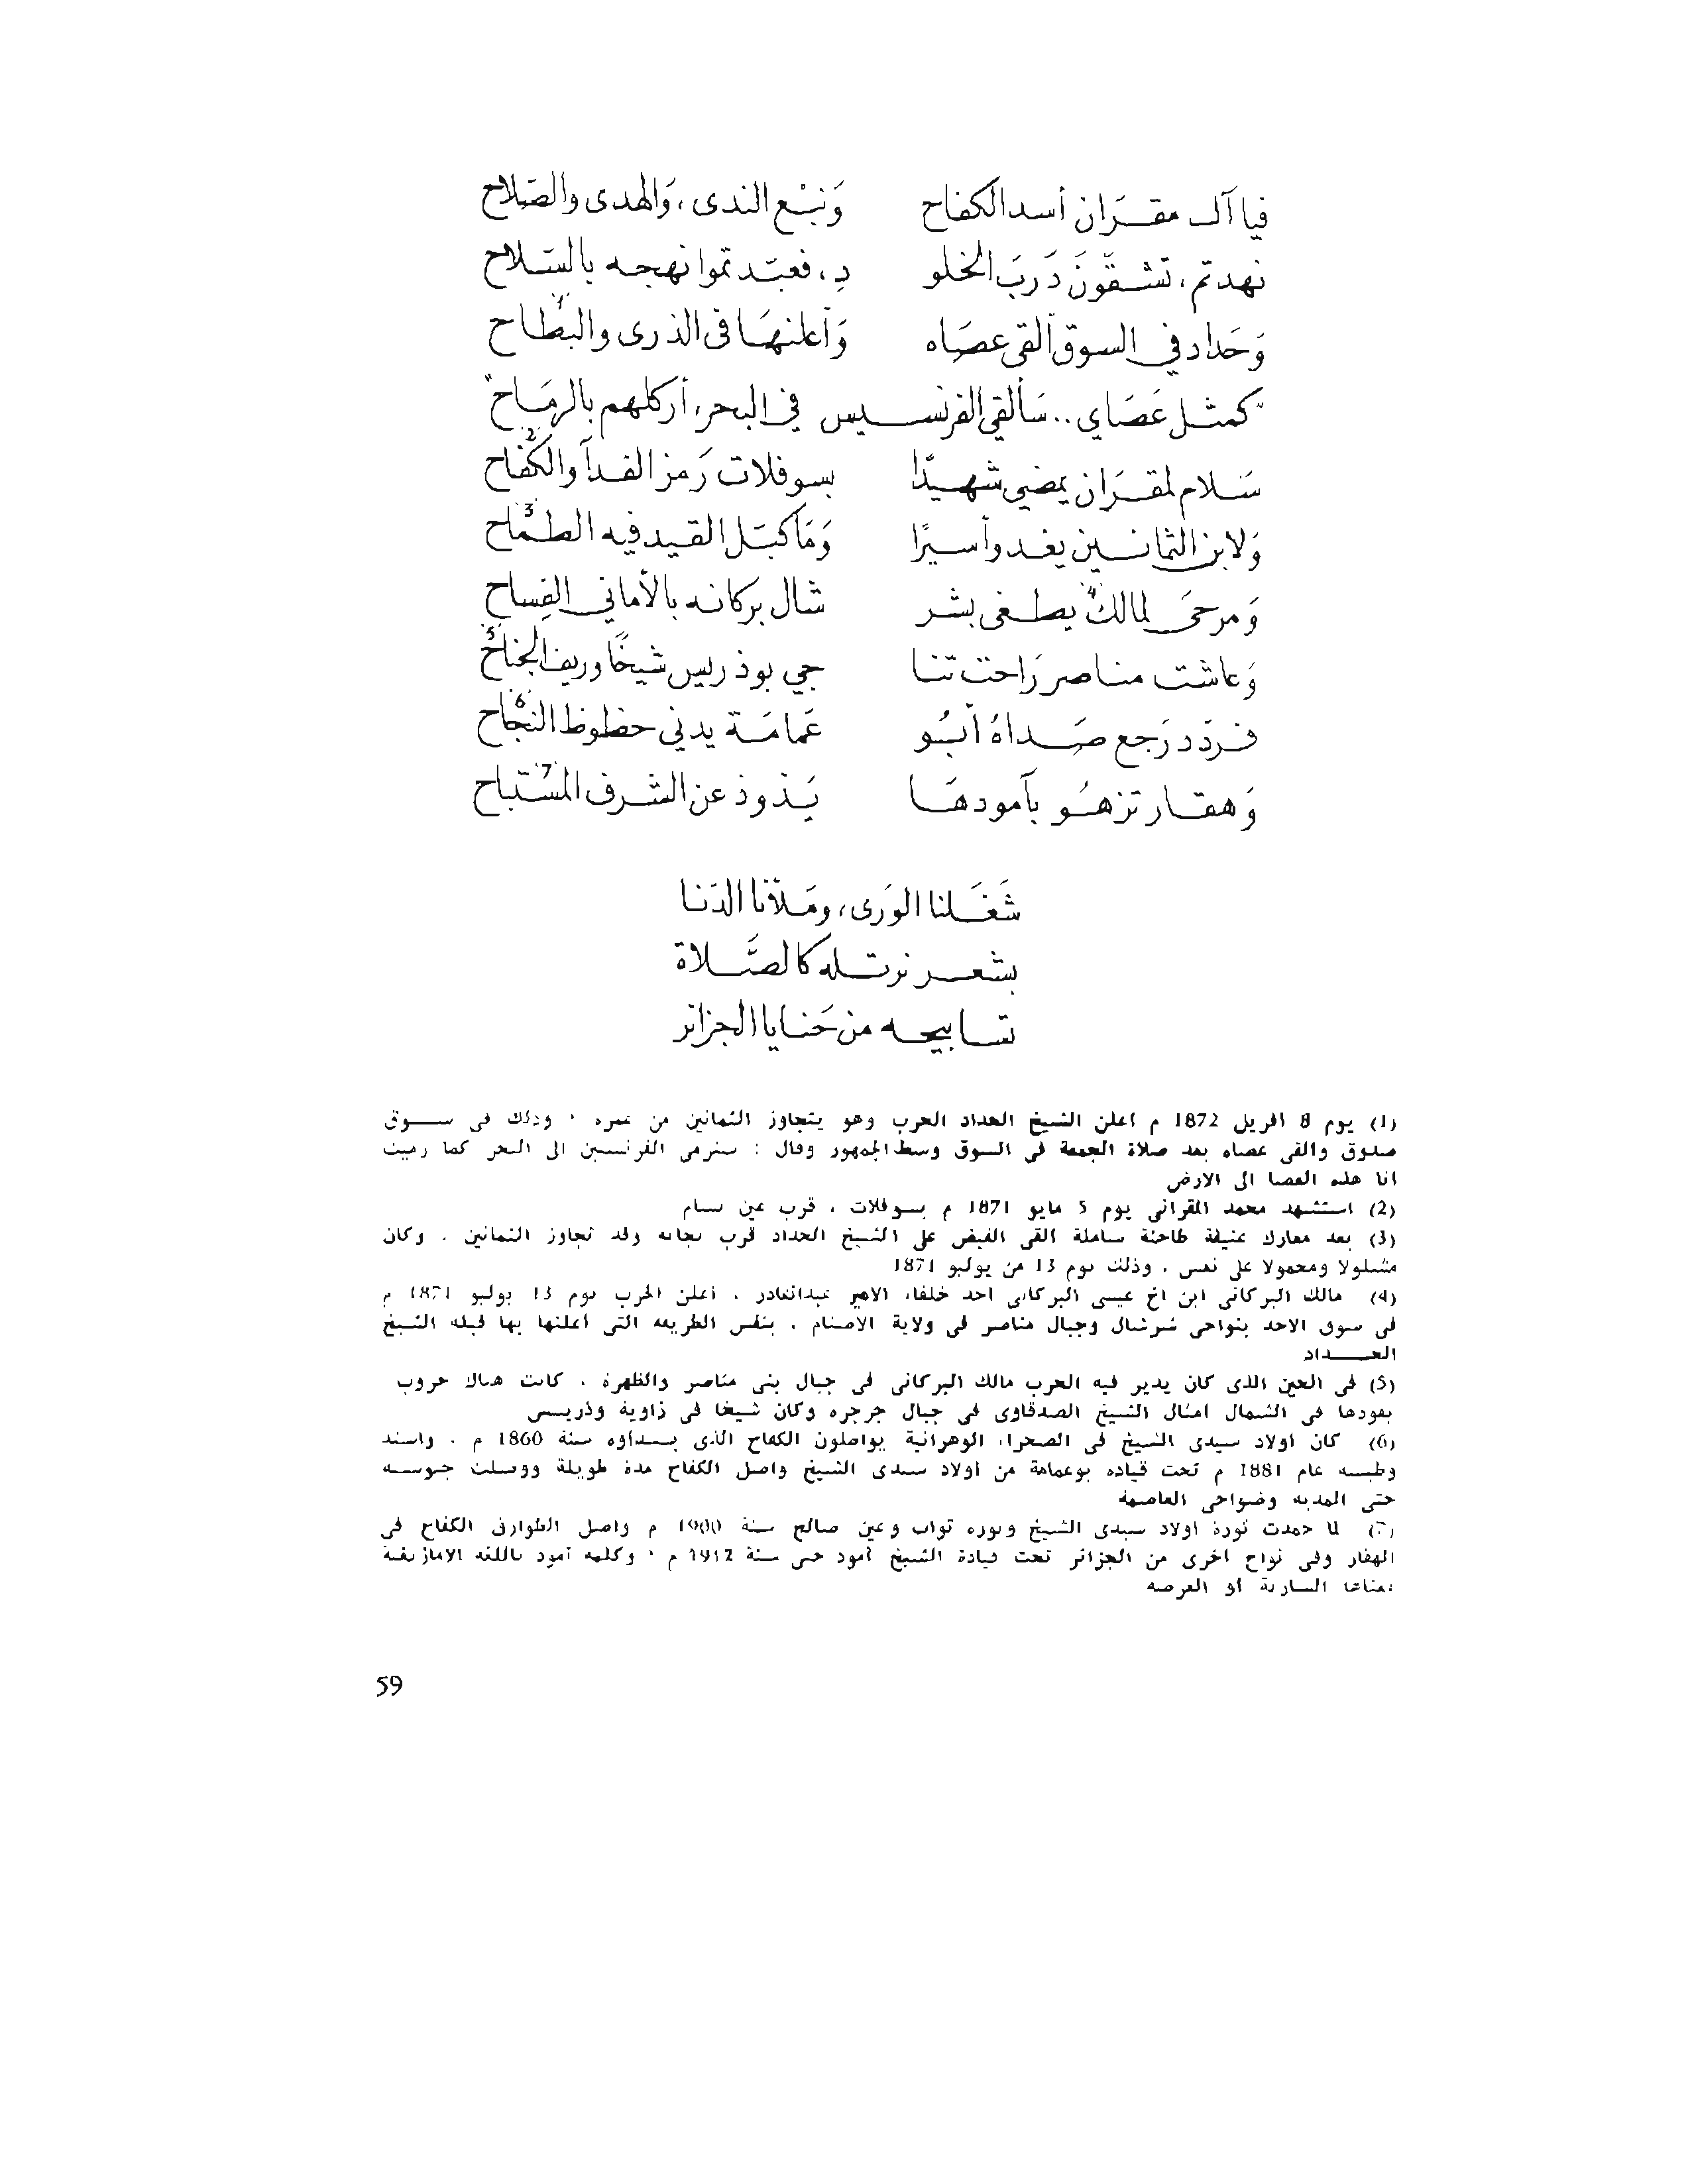 فيا آل مقـرَان أسد الكفاح    وَنبْع الندى، وَالهدى والصَلاح
نهدتم، تشقّونَ دَربَ الخلو    دِ، فعبّدتموا نهجه بالسّلاح
وَحَداد في السوق ألقى عصَاه    وَأعلنهَا فى الذرى والبطاح (1)
"كمثل عَصَاي .. سَألقي الفرنسيس في البحر، أركلهم بالرمَاح"
سَلام لمقرَان يمضي شهيدًا    بسوفلات رَمز الفدآ والكفاح (2)
وَلابن الثمانين يغدو أسيرًا    وَمَا كبّل القيد فيه الطماح (3)
وَمرحَى لمالك (4) يطغى بشر    شال بركانه بالأماني الفِساح
وَعاشت مناصر رَاحت تنا    جي بوذريس شيخًا وريف الجناح (5)
فردّد رَجع صَداهُ أبُو    عَمامَة يدني حظوظ النجاح (6)
وَهقار تزهُو بآمودهَا    يَذوذ عن الشرف المسْتباح (7)
شَغَلنا الورَى، ومَلأنا الدّنا
بشعر نرتله كالصَّلاة
تسابيحه من حَنايا الجزائر
(1) يوم 8 افريل 1872 م اعلن الشيخ الحداد الحرب وهو يتجاوز الثمانين من عمره ، وذلك فى سوق
صدوق والقى عصاه بعد صلاة الجمعة فى السوق وسط الجمهور وقال : سنرمى الفرنسيين الى البحر كما رميت
انا هذه العصا الى الارض
(2) استشهد محمد المقرانى يوم 5 مايو 1871 م بسوفلات ، قرب عين بسام
(3) بعد معارك عنيفة طاحنة شاملة القى القبض على الشيخ الحداد قرب بجاية وقد تجاوز الثمانين ، وكان
مشلولا ومحمولا على نعش ، وذلك يوم 13 من يوليو 1871
(4) مالك البركانى ابن اخ عيسى البركانى احد خلفاء الامير عبدالقادر ، اعلن الحرب يوم 13 يوليو 1871 م
فى سوق الاحد بنواحى شرشال وجبال مناصر فى ولاية الاصنام ، بنفس الطريقة التى أعلنها بها قبله الشيخ
الحداد
(5) فى الحين الذى كان يدير فيه الحرب مالك البركانى فى جبال بنى مناصر والظهرة ، كانت هناك حروب
يقودها فى الشمال امثال الشيخ الصدقاوى فى جبال جرجره وكان شيخا فى زاوية وذريسى
(6) كان اولاد سيدى الشيخ فى الصحراء الوهرانية يواصلون الكفاح الذى بدأوه سنة 1860 م ، واشتد
وطيسه عام 1881 م تحت قيادة بوعمامة من اولاد سيدى الشيخ واصل الكفاح مدة طويلة ووصلت جيوشه
حتى المدية وضواحى العاصمة
(7) لما خمدت ثورة اولاد سيدى الشيخ وثورة توات وعين صالح سنة 1900 م واصل الطوارق الكفاح فى
الهقار وفى نواح اخرى من الجزائر تحت قيادة الشيخ آمود حتى سنة 1912 م ، وكلمة آمود باللغة الامازيغية
معناها السارية أو العرصة
59